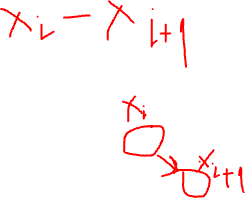 x_i - x_{i+1}
x_i
x_{i+1}